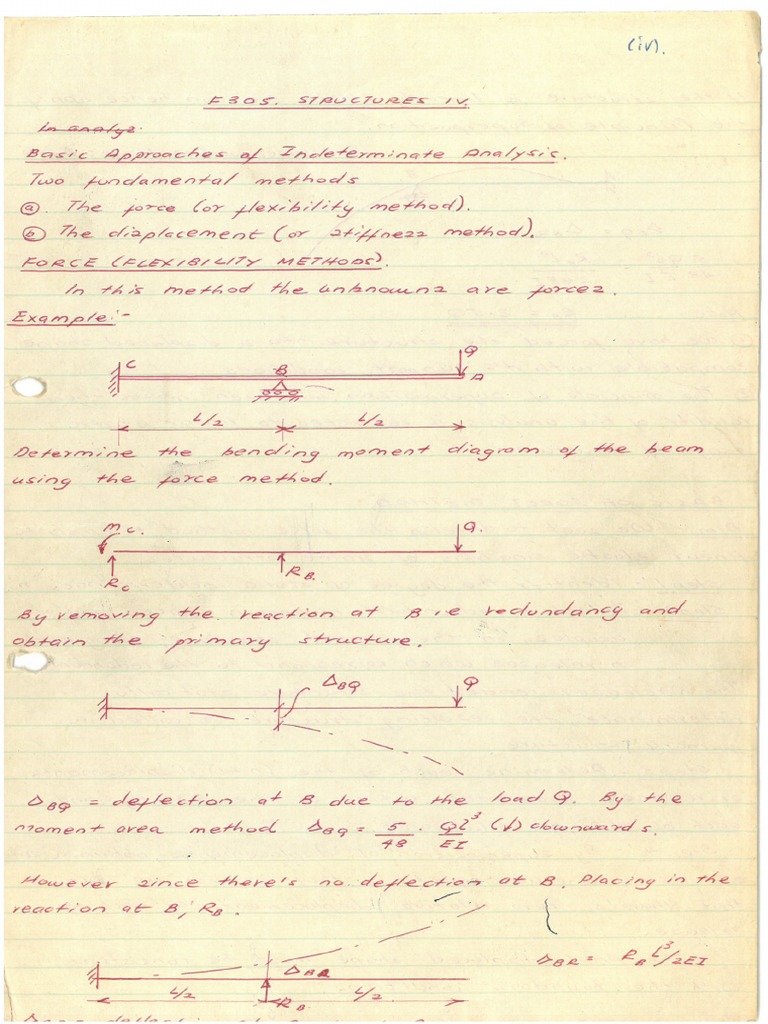 (iv).
F305. STRUCTURES IV.
In analyz.
Basic Approaches of Indeterminate Analysis.
Two fundamental methods
(a). The force (or flexibility method).
(b) The displacement (or stiffness method).
FORCE (FLEXIBILITY METHODS).
In this method the unknowns are forces.
Example:-
C B Q A
L/2 L/2
Determine the bending moment diagram of the beam
using the force method.
Mc. Q.
Rc RB.
By removing the reaction at B i.e redundancy and
obtain the primary structure.
ΔBQ Q
ΔBQ = deflection at B due to the load Q. By the
moment area method ΔBQ = 5/48 . Ql³/EI (↓) downwards.
However since there's no deflection at B. Placing in the
reaction at B, RB.
ΔBR ΔBR = RB l³/2EI
L/2 RB L/2